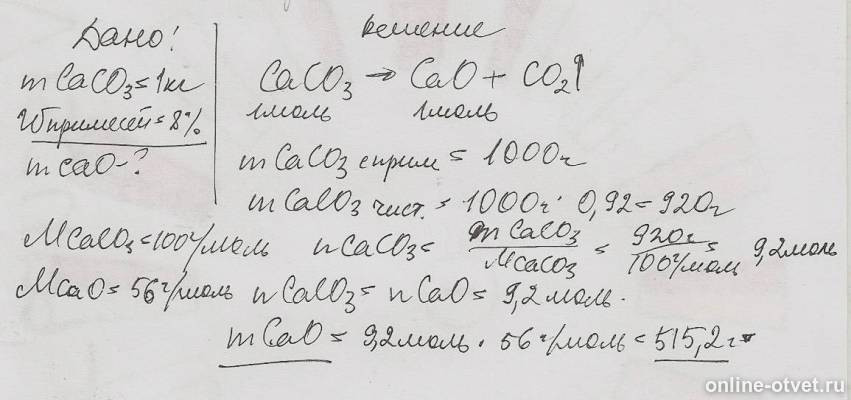 Дано:
m CaCO₃ = 1кг
W примесей = 8%
m CaO - ?
Решение
CaCO₃ → CaO + CO₂↑
1моль 1моль
m CaCO₃ с прим = 1000г
m CaCO₃ чист. = 1000г · 0,92 = 920г
M CaCO₃ = 100г/моль n CaCO₃ = m CaCO₃ / M CaCO₃ = 920г / 100г/моль = 9,2моль
M CaO = 56г/моль n CaCO₃ = n CaO = 9,2 моль.
m CaO = 9,2моль · 56г/моль = 515,2г
online-otvet.ru